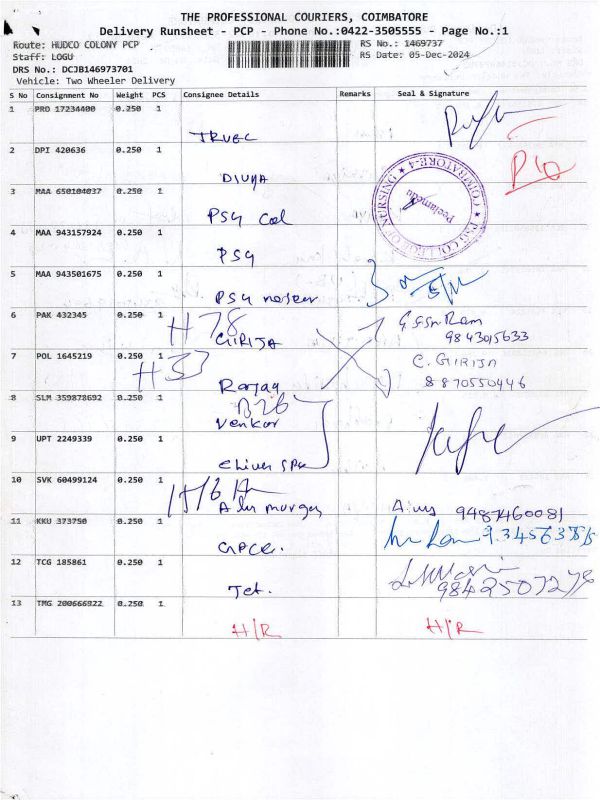 THE PROFESSIONAL COURIERS, COIMBATORE
Delivery Runsheet - PCP - Phone No.:0422-3505555 - Page No.:1
Route: HUDCO COLONY PCP
RS No.: 1469737
Staff: LOGU
RS Date: 05-Dec-2024
DRS No.: DCJB146973701
Vehicle: Two Wheeler Delivery
S No Consignment No Weight PCS Consignee Details Remarks Seal & Signature
1 PRO 17234400 0.250 1
2 DPI 420636 0.250 1
DIVYA
3 MAA 650104037 0.250 1
PSG Col
4 MAA 943157924 0.250 1
PSG
5 MAA 943501675 0.250 1
PSG
PSG COLLEGE OF NURSING
COIMBATORE-4
Peelamedu
6 PAK 432345 0.250 1
H 78
GIRIJA
9843015633
7 POL 1645219 0.250 1
H 33
C. GIRIJA
8870550446
8 SLM 359878692 0.250 1
B26
9 UPT 2249339 0.250 1
10 SVK 60499124 0.250 1
9487460081
11 KKU 373750 0.250 1
12 TCG 185861 0.250 1
13 TMG 200666922 0.250 1
H/R H/R